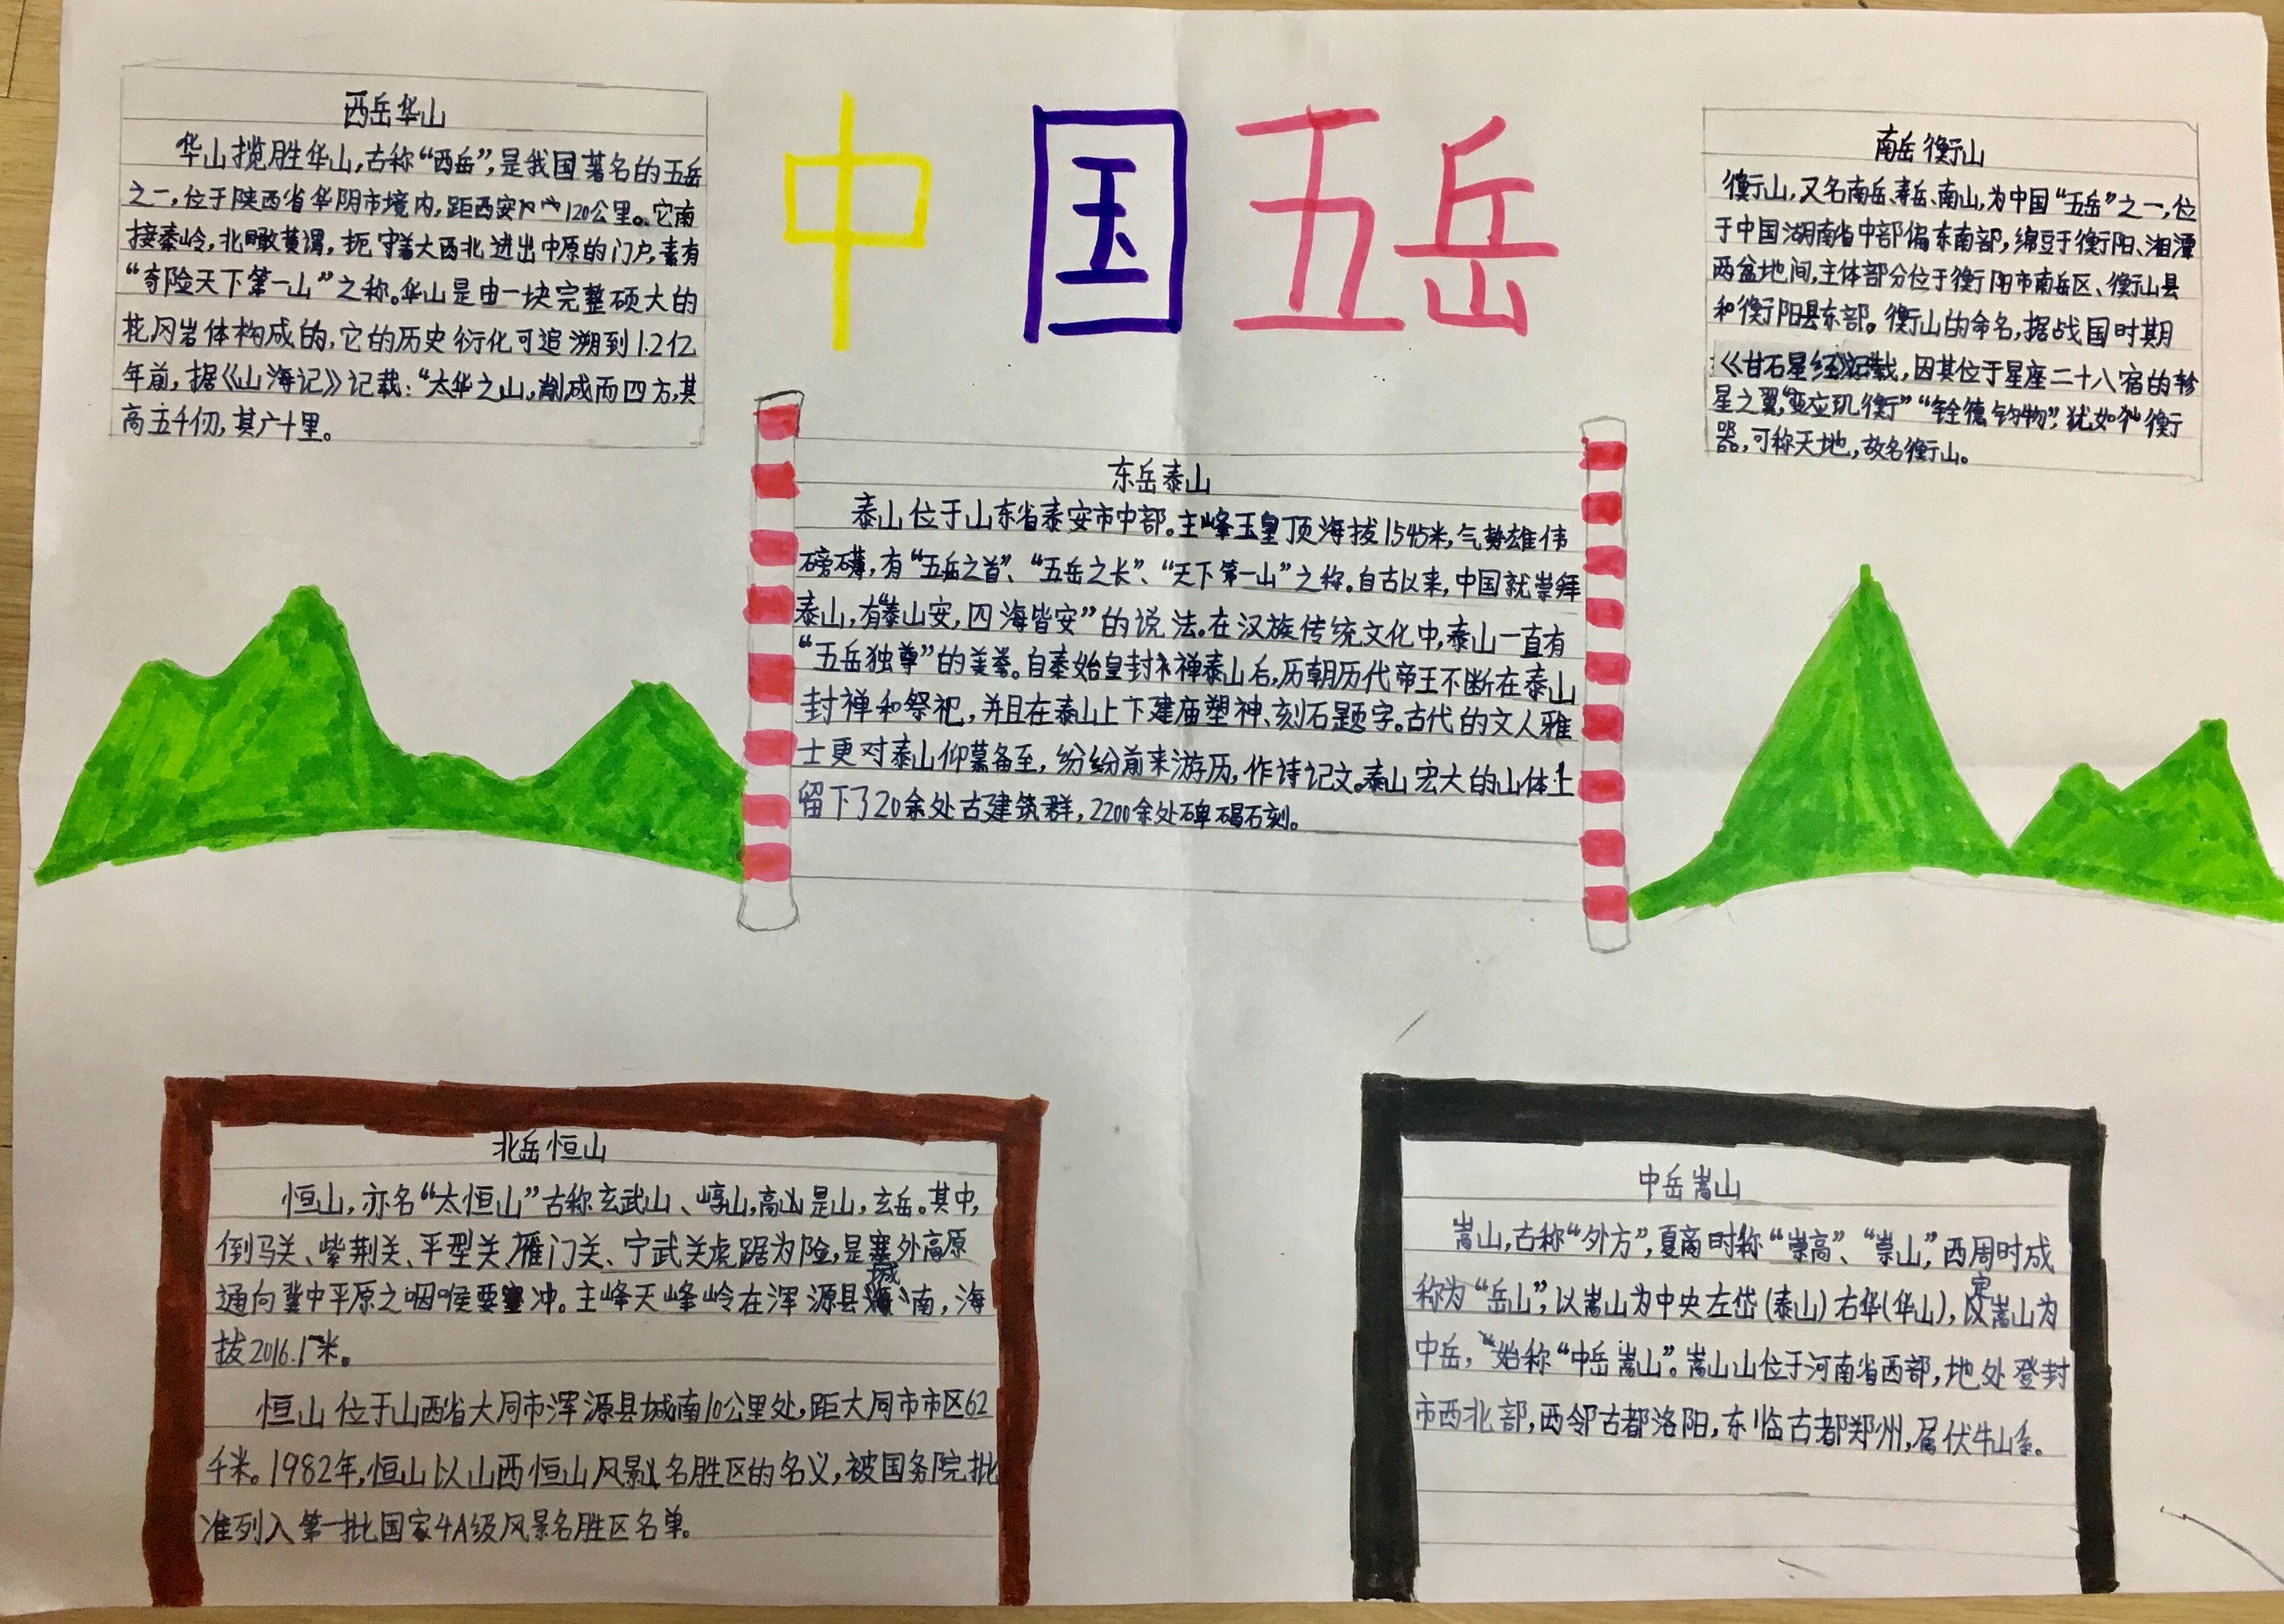 中国五岳
西岳华山
华山揽胜华山,古称“西岳”,是我国著名的五岳
之一,位于陕西省华阴市境内,距西安120公里。它南
接秦岭,北瞰黄渭,扼守着大西北进出中原的门户,素有
“奇险天下第一山”之称。华山是由一块完整硕大的
花冈岩体构成的,它的历史衍化可追溯到1.2亿
年前,据《山海记》记载:“太华之山,削成而四方,其
高五千仞,其广十里。
南岳衡山
衡山,又名南岳、寿岳、南山,为中国“五岳”之一,位
于中国湖南省中部偏东南部,绵亘于衡阳、湘潭
两盆地间,主体部分位于衡阳市南岳区、衡山县
和衡阳县东部。衡山的命名,据战国时期
《甘石星经》记载,因其位于星座二十八宿的轸
星之翼,“变应玑衡”“铨德钧物”,犹如衡
器,可称天地,故名衡山。
东岳泰山
泰山位于山东省泰安市中部。主峰玉皇顶海拔1545米,气势雄伟
磅礴,有“五岳之首”、“五岳之长”、“天下第一山”之称。自古以来,中国就崇拜
泰山,有“泰山安,四海皆安”的说法。在汉族传统文化中,泰山一直有
“五岳独尊”的美誉。自秦始皇封禅泰山后,历朝历代帝王不断在泰山
封禅和祭祀,并且在泰山上下建庙塑神、刻石题字。古代的文人雅
士更对泰山仰慕备至,纷纷前来游历,作诗记文。泰山宏大的山体上
留下了20余处古建筑群,2200余处碑碣石刻。
北岳恒山
恒山,亦名“太恒山”古称玄武山、崞山,高是山,玄岳。其中,
倒马关、紫荆关、平型关、雁门关、宁武关虎踞为险,是塞外高原
通向冀中平原之咽喉要冲。主峰天峰岭在浑源县城南,海
拔2016.1米。
恒山位于山西省大同市浑源县城南10公里处,距大同市市区62
千米。1982年,恒山以山西恒山风景名胜区的名义,被国务院批
准列入第一批国家4A级风景名胜区名单。
中岳嵩山
嵩山,古称“外方”,夏商时称“崇高”、“崇山”,西周时成
称为“岳山”,以嵩山为中央左岱(泰山)右华(华山),定嵩山为
中岳,始称“中岳嵩山”。嵩山山位于河南省西部,地处登封
市西北部,西邻古都洛阳,东临古都郑州,属伏牛山系。